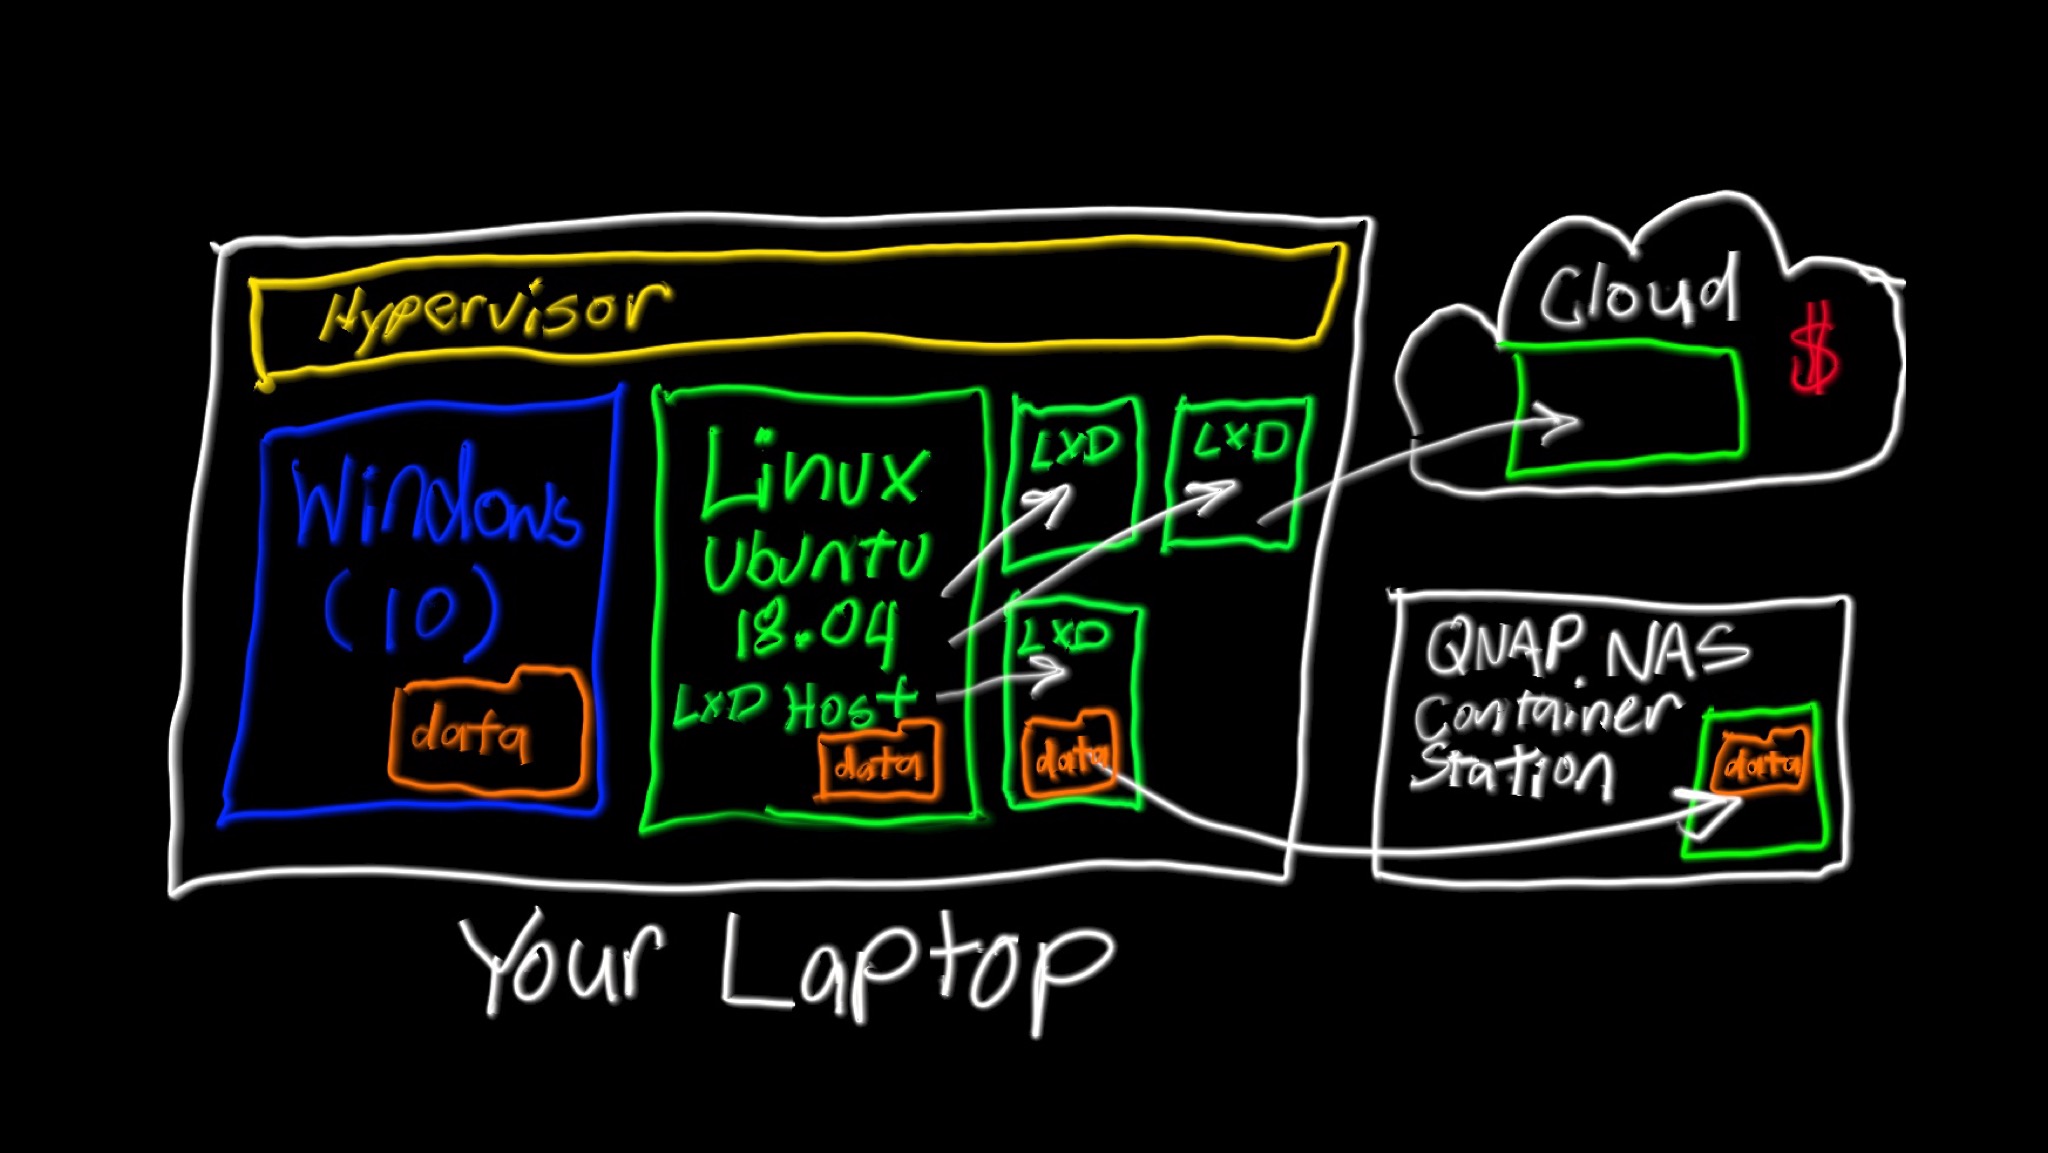 Hypervisor
Windows
(10)
data
Linux
Ubuntu
18.04
LXD Host
data
LXD
LXD
LXD
data
Cloud
$
QNAP NAS
Container
Station
data
Your Laptop